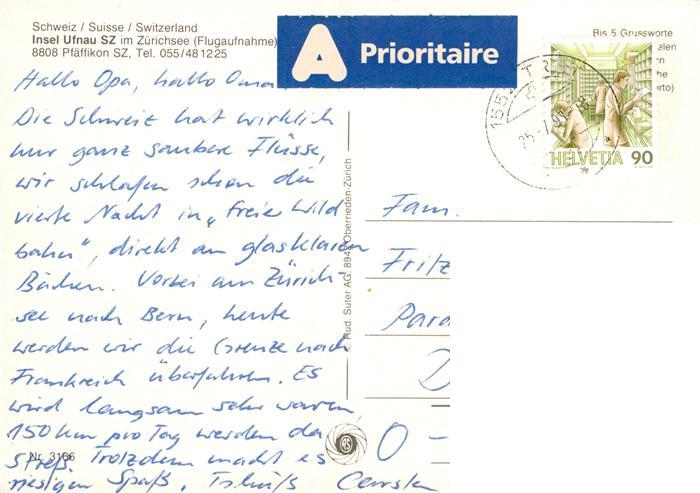 Schweiz / Suisse / Switzerland
Insel Ufnau SZ im Zürichsee (Flugaufnahme)
8808 Pfäffikon SZ, Tel. 055/48 12 25
A Prioritaire
Bis 5 Grussworte
elen
he
orto)
HELVETIA 90
Hallo Opa, hallo Oma
Die Schweiz hat wirklich
nur ganz saubere Flüsse,
wir schlafen schon die
vierte Nacht in „freie Wild
bahn", direkt an glasklaren
Bächen. Vorbei am Zürich-
see nach Bern, heute
werden wir die Grenze nach
Frankreich überfahren. Es
wird langsam sehr warm,
150 km pro Tag werden da
Streß. Trotzdem macht es
riesigen Spaß, Tschüß
Nr. 3166
© Rud. Suter AG, 8942 Oberrieden-Zürich
Fam.
Fritz
Para
D
O-